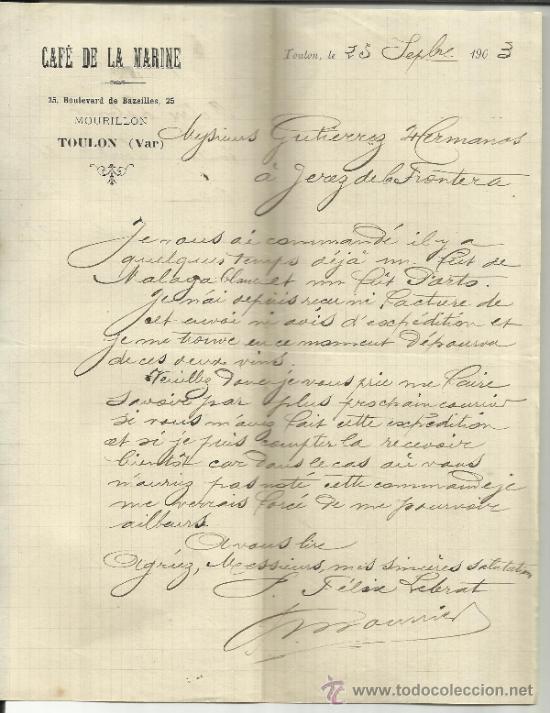 CAFÉ DE LA MARINE
25, Boulevard de Bazeilles, 25
MOURILLON
TOULON (Var)
Toulon, le 25 Sepbre 1903
Messieurs Gutierrez Hermanos
à Jerez de la Frontera
Je vous ai commandé il y a
quelques temps déjà un fut de
Malaga blanc et un fût Porto.
Je n'ai depuis reçu ni facture de
cet envoi ni avis d'expédition et
je me trouve en ce moment dépourvu
de ces deux vins.
Veuillez donc je vous prie me faire
savoir par plus prochain courrier
si vous m'avez fait cette expédition
et si je puis compter la recevoir
bientôt car dans le cas où vous
n'auriez pas noté cette commande je
me verrais forcé de me pourvoir
ailleurs.
A vous lire
Agréez, Messieurs, mes sincères salutations
Félix Lebrat
todocoleccion.net
www.todocoleccion.net